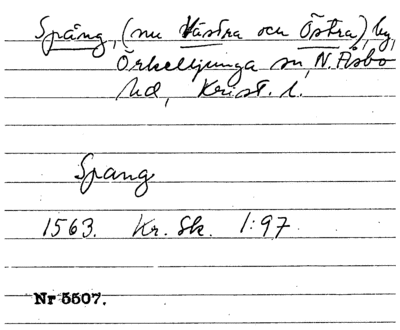 Spång, (nu Västra och Östra), by,
Örkelljunga sn, N. Åsbo
hd, Krist. l.
Spang
1563. Kr. Sk. 1:97.
Nr 5507.